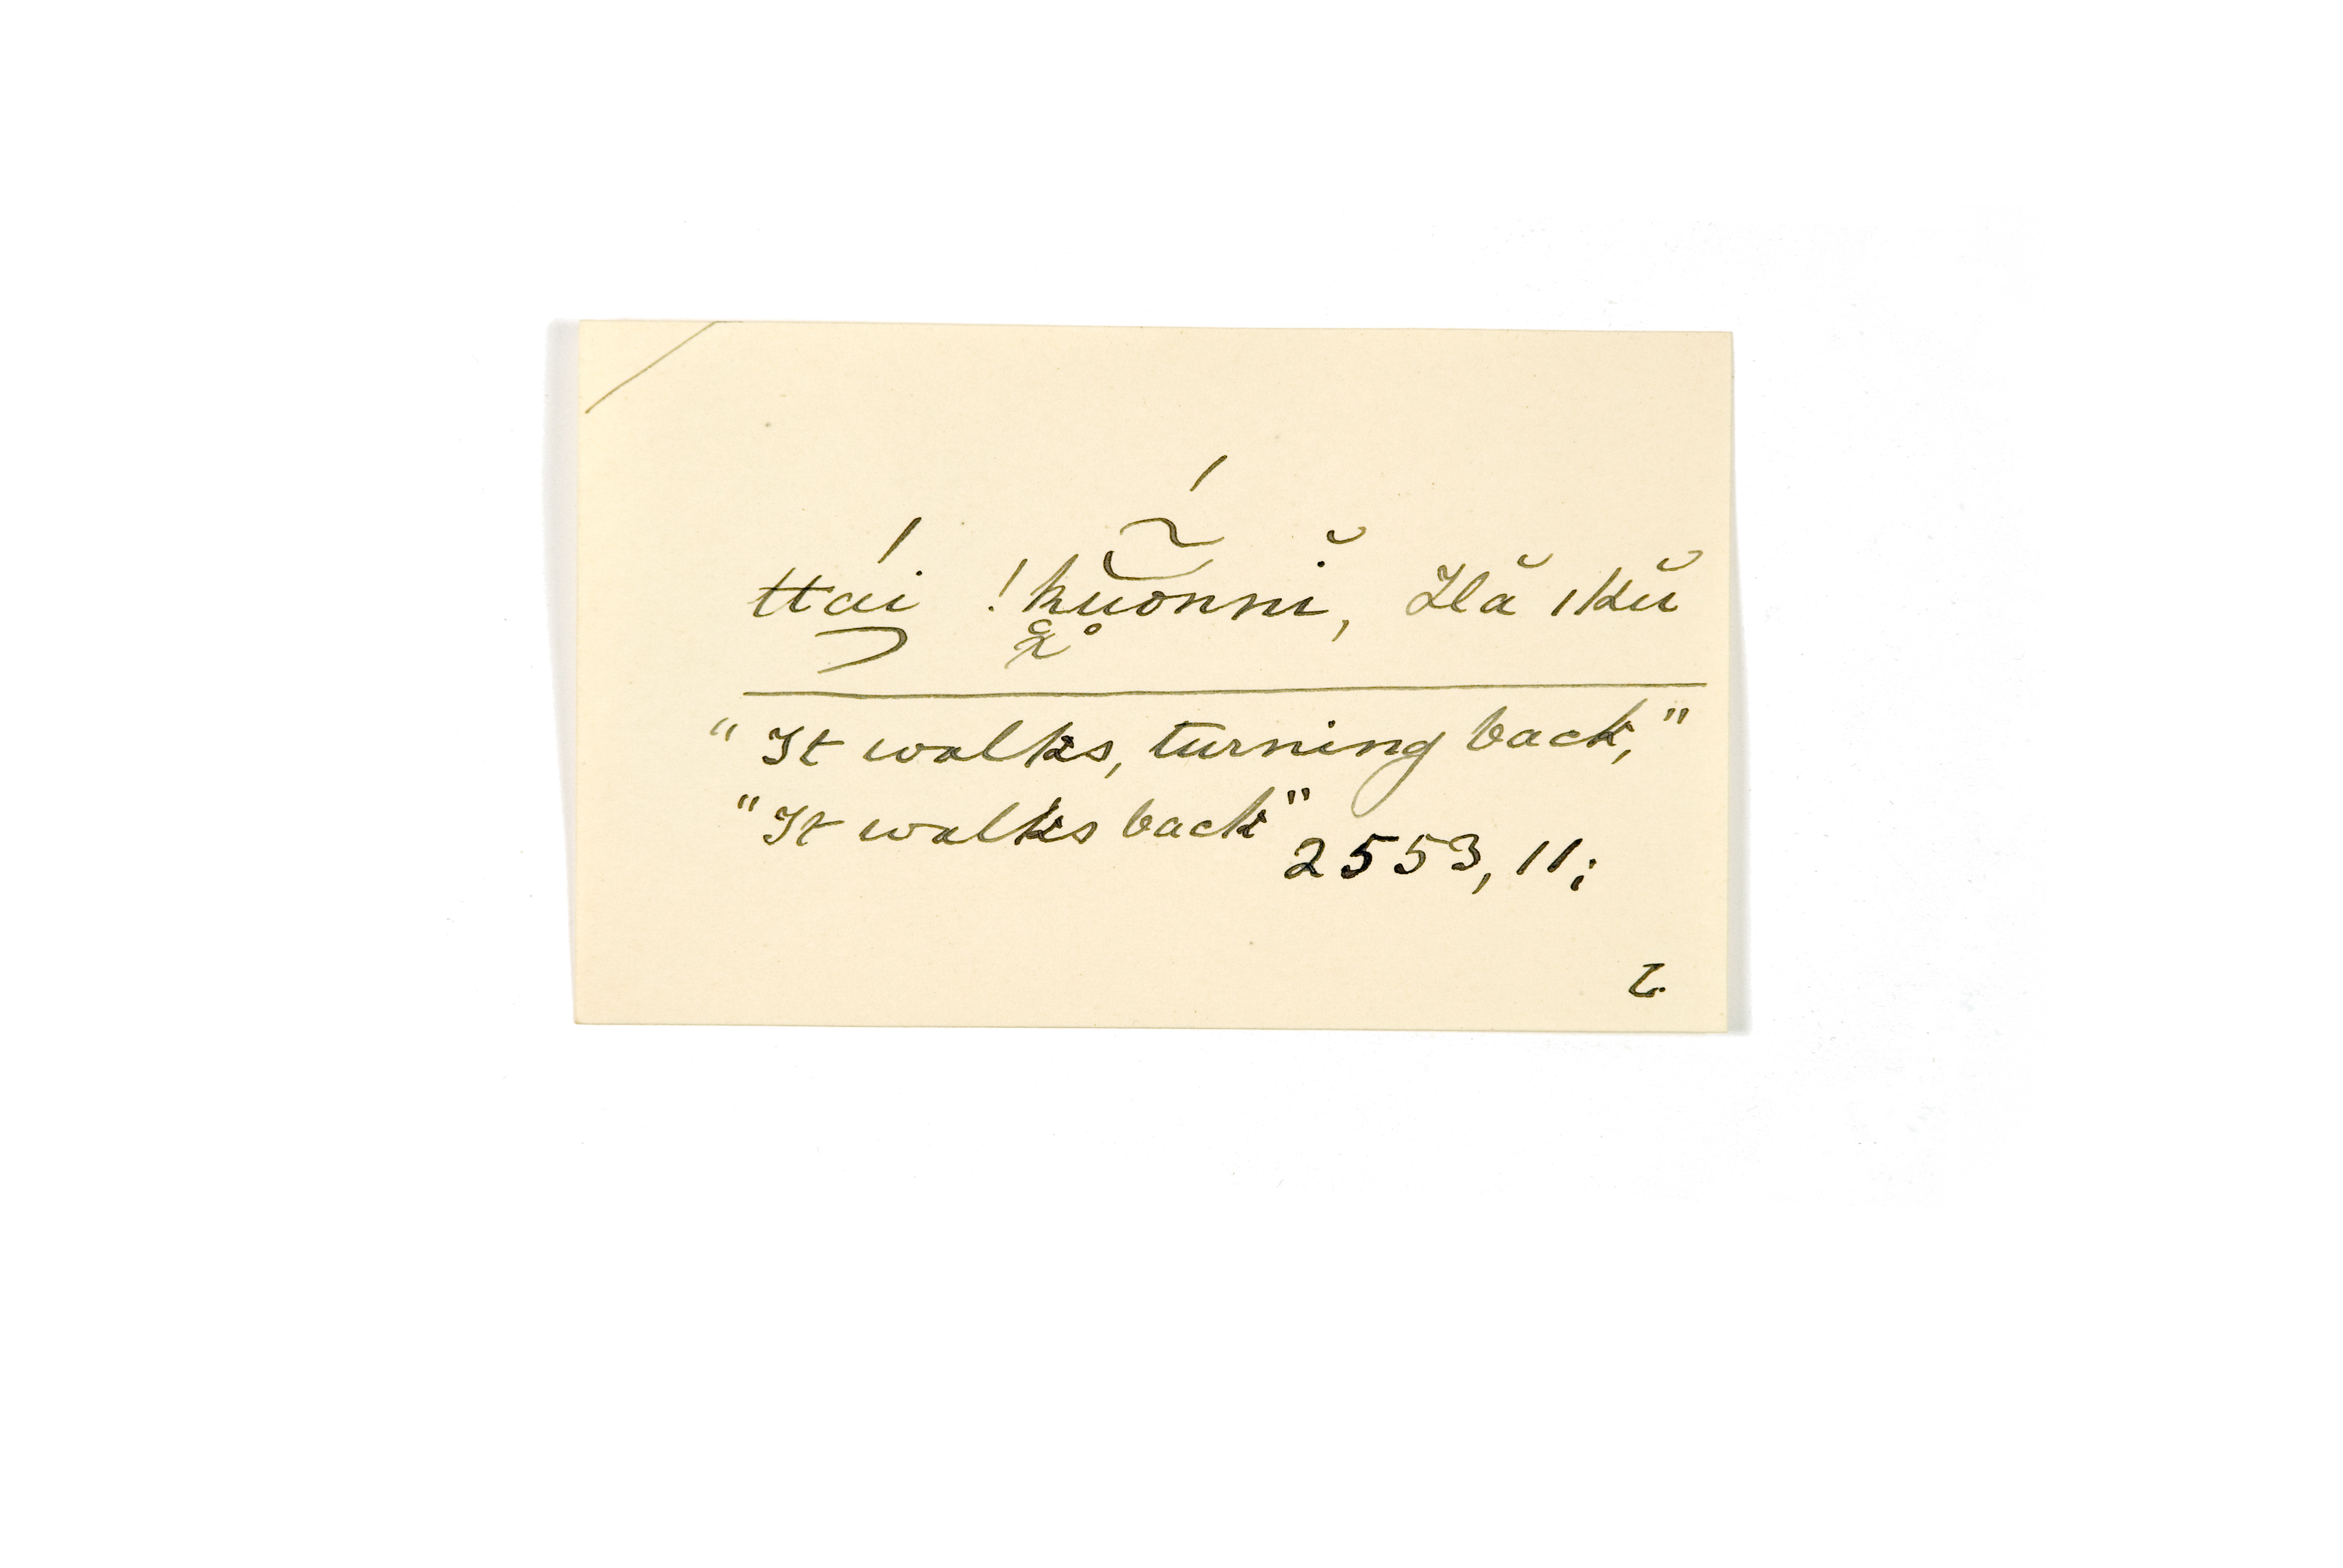 ttái !kũŏnnĭ, Hă ıkŭ
"It walks, turning back,"
"It walks back"
2553, 11;
L.